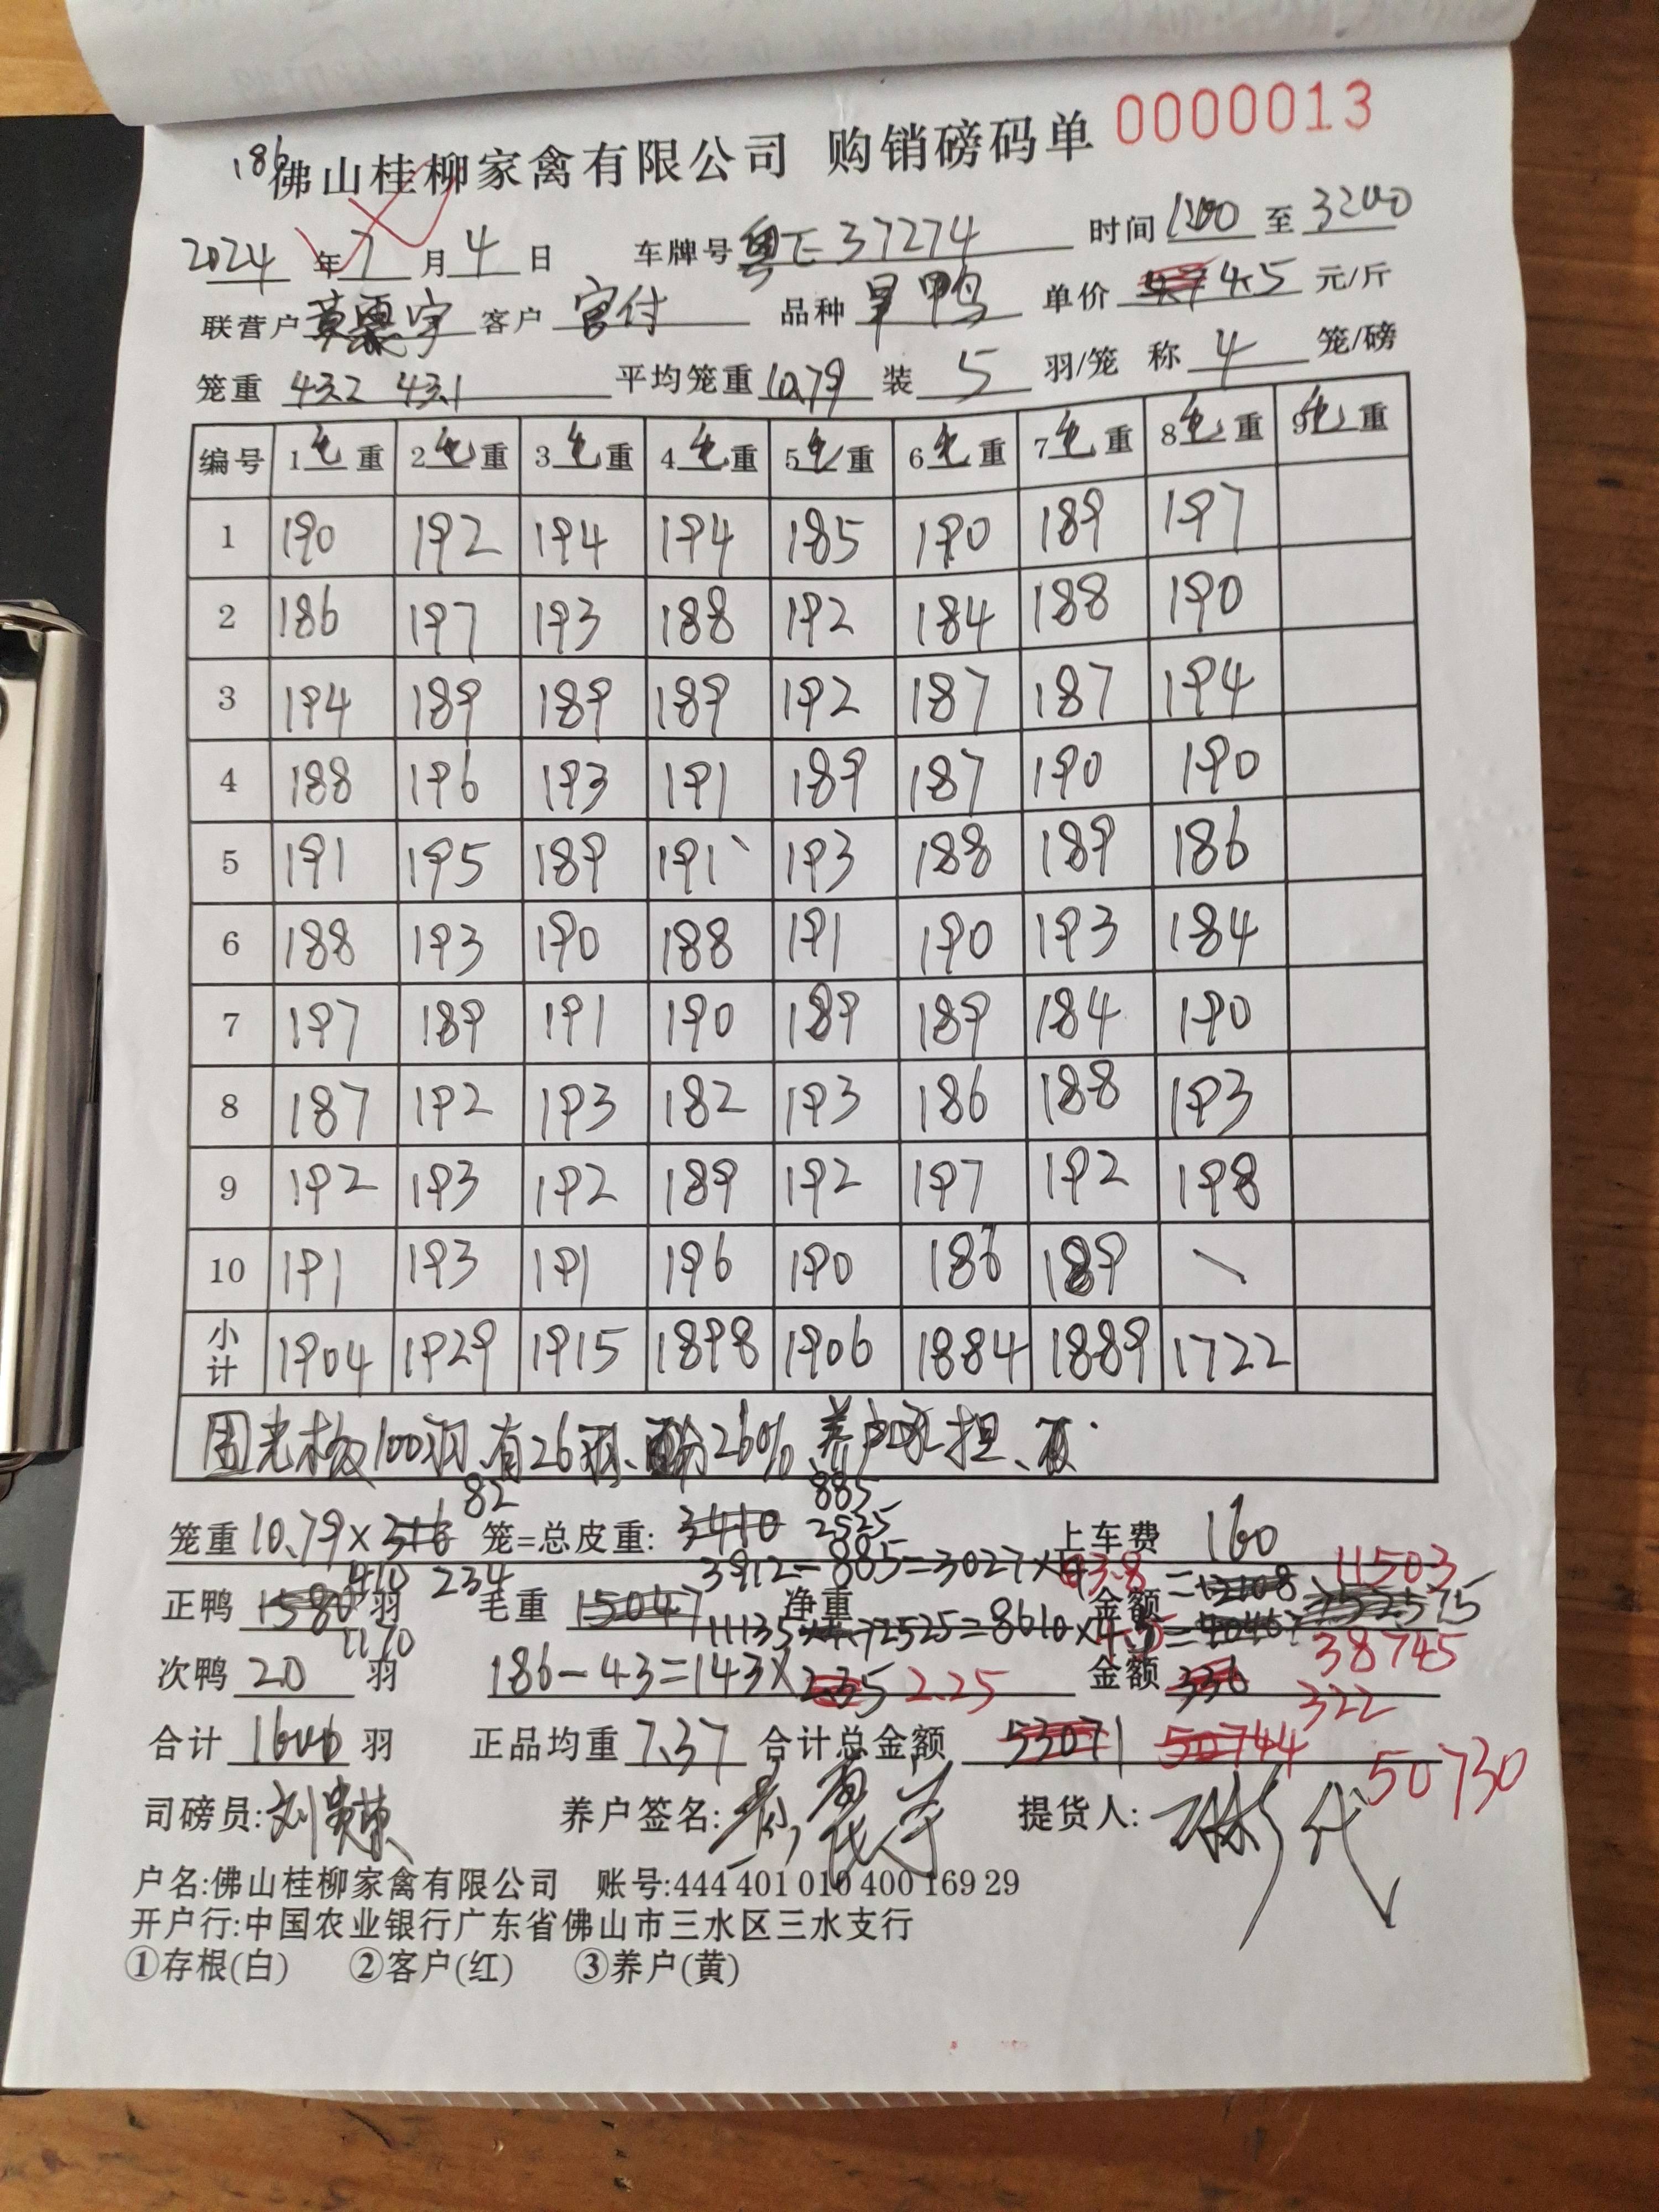 186
佛山桂柳家禽有限公司 购销磅码单 0000013
2024 年 7 月 4 日 车牌号 粤E 37274 时间 1200 至 3200
联营户 客户 官付 品种 旱鸭 单价 4.5 元/斤
笼重 43.2 43.1 平均笼重 10.79 装 5 羽/笼 称 4 笼/磅
编号 1毛重 2毛重 3毛重 4毛重 5毛重 6毛重 7毛重 8毛重 9毛重
1 190 192 194 194 185 190 189 197
2 186 197 193 188 192 184 188 190
3 194 189 189 189 192 187 187 194
4 188 196 193 191 189 187 190 190
5 191 195 189 191 193 188 189 186
6 188 193 190 188 191 190 193 184
7 197 189 191 190 189 189 184 190
8 187 192 193 182 193 186 188 193
9 192 193 192 189 192 197 192 198
10 191 193 191 196 190 186 189 \
小计 1904 1929 1915 1898 1906 1884 1889 1722
100羽、有26羽、26% 养户承担、
82 885
笼重 10.79 × 316 笼=总皮重: 3410 2525 上车费 160
410 234 3912-885=3027×3.8= 11503
正鸭 1580 羽 毛重 15047 净重 金额
1170 11135-2525=8610×4.5= 38745
次鸭 20 羽 186-43=143× 2.25 金额 336 322
合计 1600 羽 正品均重 7.37 合计总金额 53071 50744 50730
司磅员: 养户签名: 提货人:
户名:佛山桂柳家禽有限公司 账号:444 401 010 400 169 29
开户行:中国农业银行广东省佛山市三水区三水支行
①存根(白) ②客户(红) ③养户(黄)